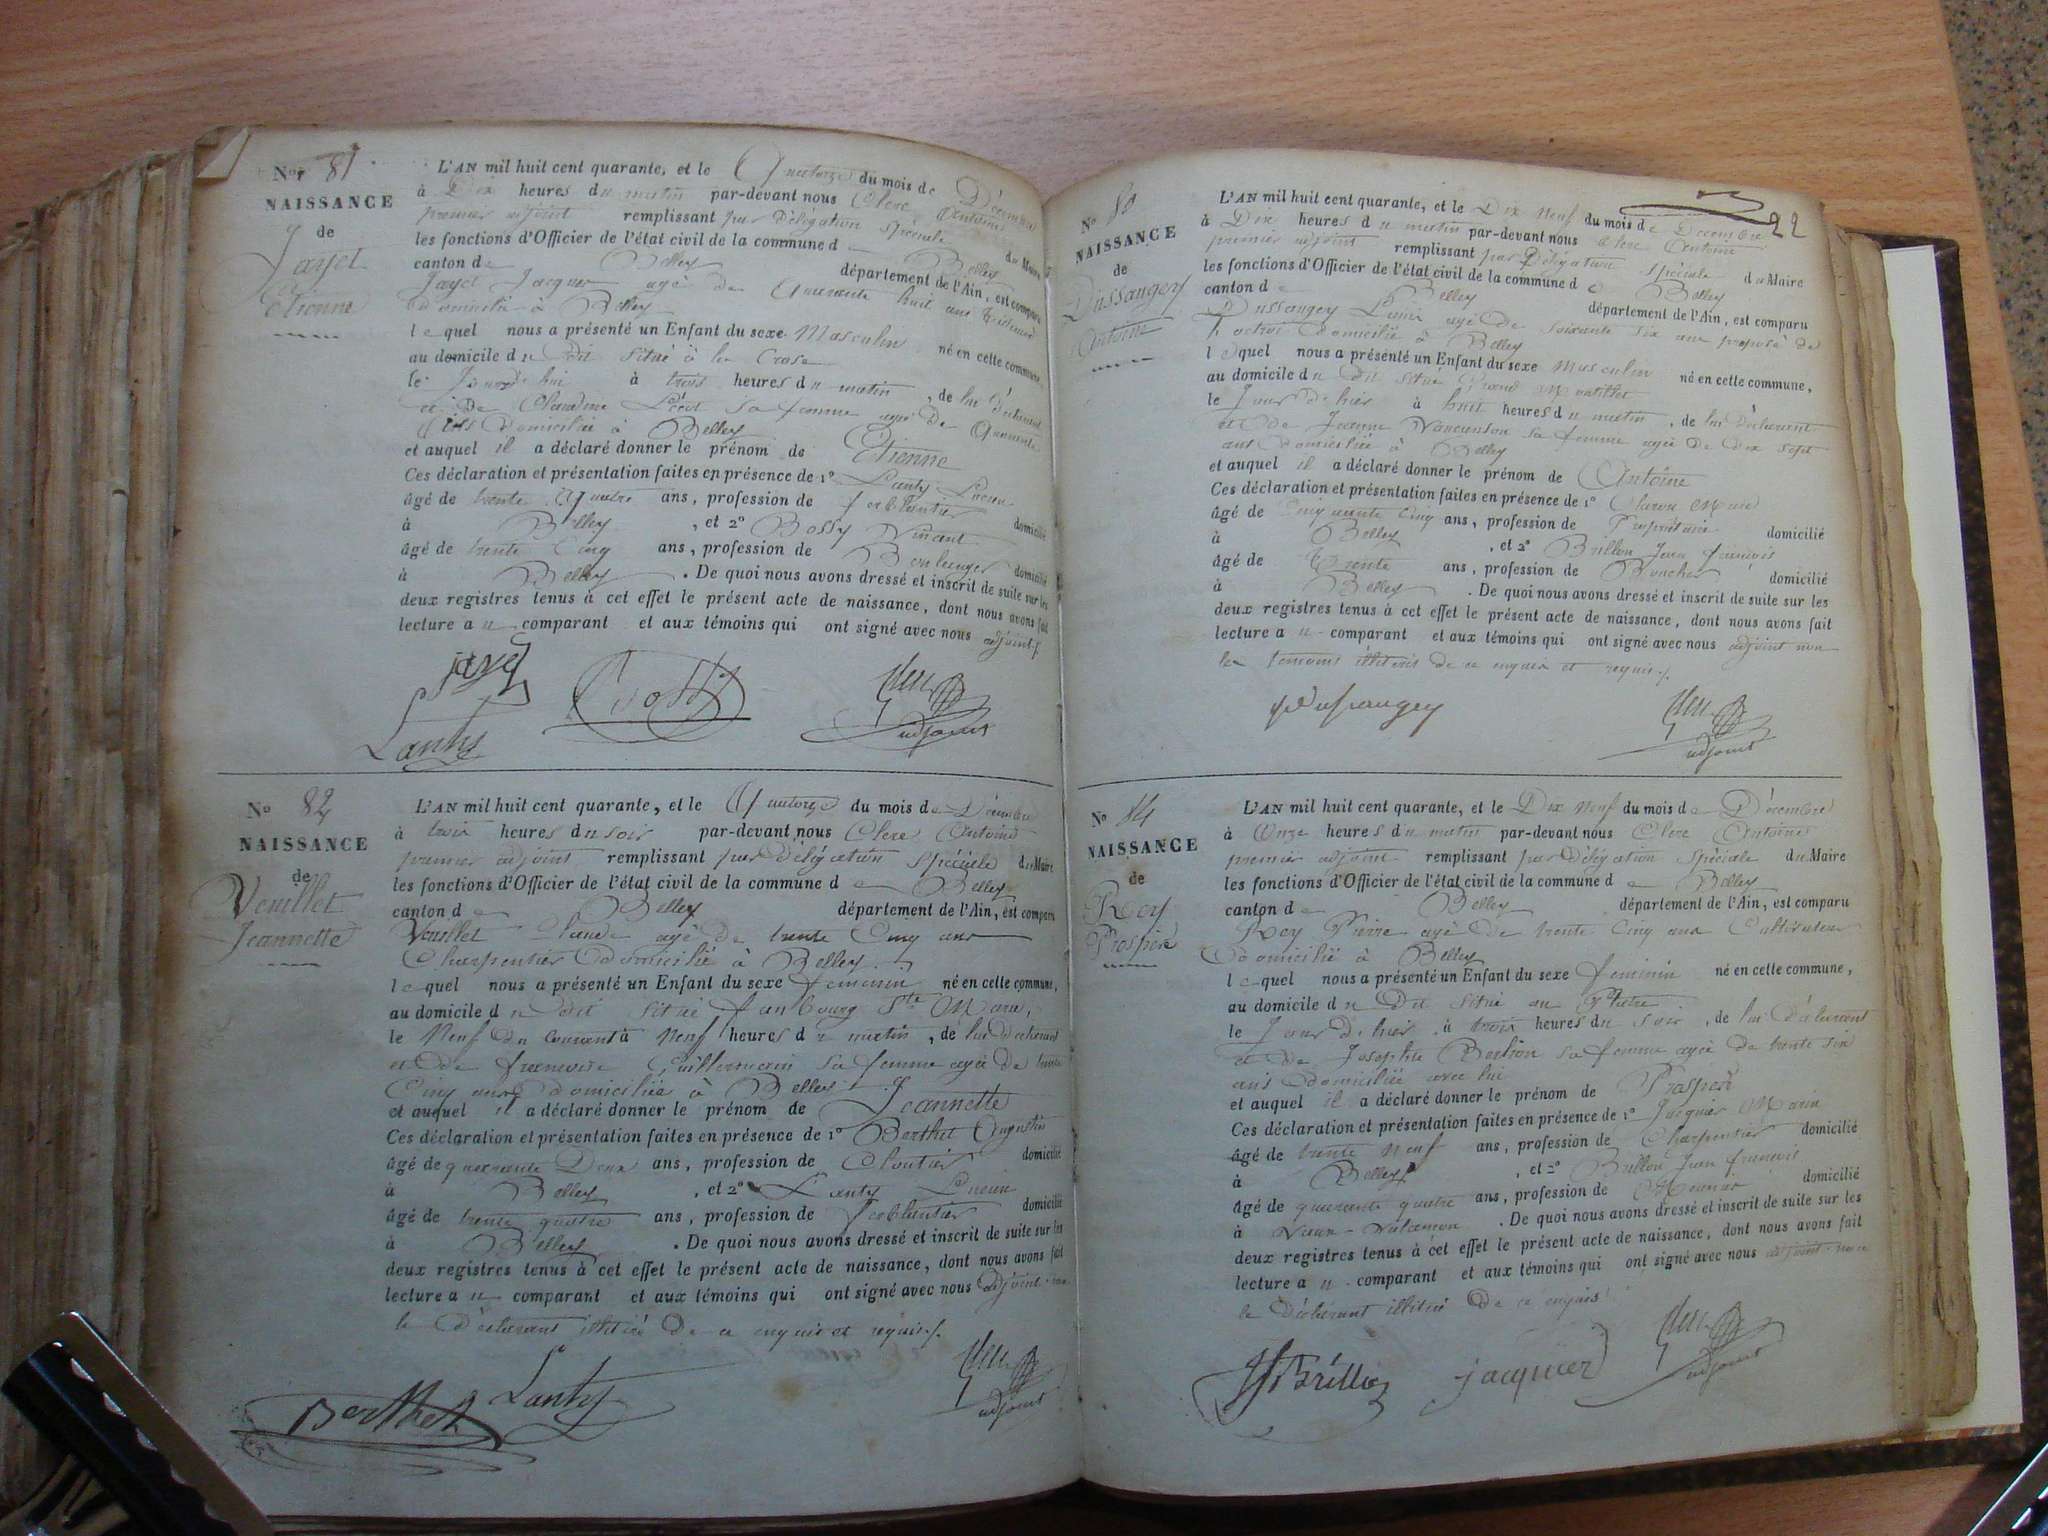 N° 81
NAISSANCE
de
Jayet
Etienne
L'AN mil huit cent quarante, et le Quatorze du mois de Décembre
à Dix heures du matin par-devant nous Clerc Antoine
premier adjoint remplissant par Délégation spéciale du Maire
les fonctions d'Officier de l'état civil de la commune de Belley
canton de Belley département de l'Ain, est comparu
Jayet Jacques agé de Quarante huit ans
domicilié à Belley
lequel nous a présenté un Enfant du sexe Masculin né en cette commune,
au domicile du dit situé à la Crose
le Jourd'hui à trois heures du matin, de lui Déclarant
et de Claudine sa femme agée de Quarante
domiciliée à Belley
et auquel il a déclaré donner le prénom de Etienne
Ces déclaration et présentation faites en présence de 1° Lanty Lucien
âgé de trente Quatre ans, profession de ferblantier domicilié
à Belley, et 2° Bossy Vincent
âgé de trente Cinq ans, profession de Boulanger domicilié
à Belley. De quoi nous avons dressé et inscrit de suite sur les
deux registres tenus à cet effet le présent acte de naissance, dont nous avons fait
lecture au comparant et aux témoins qui ont signé avec nous adjoint
jayet
Lanty
Bossy
Clerc
adjoint
N° 82
NAISSANCE
de
Veuillet
Jeannette
L'AN mil huit cent quarante, et le Quatorze du mois de Décembre
à trois heures du soir par-devant nous Clerc Antoine
premier adjoint remplissant par Délégation spéciale du Maire
les fonctions d'Officier de l'état civil de la commune de Belley
canton de Belley département de l'Ain, est comparu
Veuillet Claude agé de trente Cinq ans
Charpentier domicilié à Belley
lequel nous a présenté un Enfant du sexe feminin né en cette commune,
au domicile du dit situé faubourg Ste Marie,
le Neuf du courant à Neuf heures du matin, de lui Déclarant
et de francoise Guillermain sa femme agée de trente
Cinq ans domiciliée à Belley
et auquel il a déclaré donner le prénom de Jeannette
Ces déclaration et présentation faites en présence de 1° Berthet Augustin
âgé de quarante Deux ans, profession de Cloutier domicilié
à Belley, et 2° Lanty Lucien
âgé de trente quatre ans, profession de ferblantier domicilié
à Belley. De quoi nous avons dressé et inscrit de suite sur les
deux registres tenus à cet effet le présent acte de naissance, dont nous avons fait
lecture au comparant et aux témoins qui ont signé avec nous adjoint non
le Déclarant illitéré de ce enquis et requis
Berthet
Lanty
Clerc
adjoint
22
N°
NAISSANCE
de
Dussangey
Antoine
L'AN mil huit cent quarante, et le Dix Neuf du mois de Décembre
à Dix heures du matin par-devant nous Clerc Antoine
premier adjoint remplissant par Délégation spéciale du Maire
les fonctions d'Officier de l'état civil de la commune de Belley
canton de Belley département de l'Ain, est comparu
Dussangey agé de soixante six ans préposé de
l'octroi domicilié à Belley
lequel nous a présenté un Enfant du sexe Masculin né en cette commune,
au domicile du Dit situé
le Jour d'hier à huit heures du matin, de lui Déclarant
et de Jeanne sa femme agée de Dix sept
ans domiciliée à Belley
et auquel il a déclaré donner le prénom de Antoine
Ces déclaration et présentation faites en présence de 1°
âgé de Cinquante Cinq ans, profession de Propriétaire domicilié
à Belley, et 2° Brillon Jean françois
âgé de Trente ans, profession de Boucher domicilié
à Belley. De quoi nous avons dressé et inscrit de suite sur les
deux registres tenus à cet effet le présent acte de naissance, dont nous avons fait
lecture au comparant et aux témoins qui ont signé avec nous adjoint non
les temoins illiteris de ce enquis et requis
Dussangey
Clerc
adjoint
N° 84
NAISSANCE
de
Rey
Prospere
L'AN mil huit cent quarante, et le Dix Neuf du mois de Décembre
à Onze heures du matin par-devant nous Clerc Antoine
premier adjoint remplissant par Délégation spéciale du Maire
les fonctions d'Officier de l'état civil de la commune de Belley
canton de Belley département de l'Ain, est comparu
Rey Pierre agé de trente Cinq ans Cultivateur
domicilié à Belley
lequel nous a présenté un Enfant du sexe feminin né en cette commune,
au domicile du Dit situé au
le Jour d'hier à trois heures du soir, de lui Déclarant
et de Josephte Berlion sa femme agée de trente six
ans domiciliée avec lui
et auquel il a déclaré donner le prénom de Prospere
Ces déclaration et présentation faites en présence de 1° Jacquier Marin
âgé de trente Neuf ans, profession de Charpentier domicilié
à Belley, et 2° Brillon Jean francois
âgé de quarante quatre ans, profession de Meunier domicilié
à. De quoi nous avons dressé et inscrit de suite sur les
deux registres tenus à cet effet le présent acte de naissance, dont nous avons fait
lecture au comparant et aux témoins qui ont signé avec nous adjoint non
le Déclarant illitéré de ce enquis
Brillion
jacquier
Clerc
adjoint